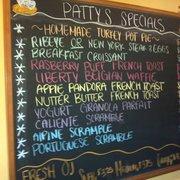 PATTY'S SPECIALS
~ HOMEMADE TURKEY POT PIE ~
* RIBEYE OR NEW YORK STEAK & EGGS
* BREAKFAST CROISSANT
* RASBERRY PUFF FRENCH TOAST
* LIBERTY BELGIAN WAFFLE
* APPLE PANDORA FRENCH TOAST
* NUTTER BUTTER FRENCH TOAST
* YOGURT GRANOLA PARFAIT
* CALIENTE SCRAMBLE
* ALPINE SCRAMBLE
* PORTUGUESE SCRAMBLE
FRESH OJ